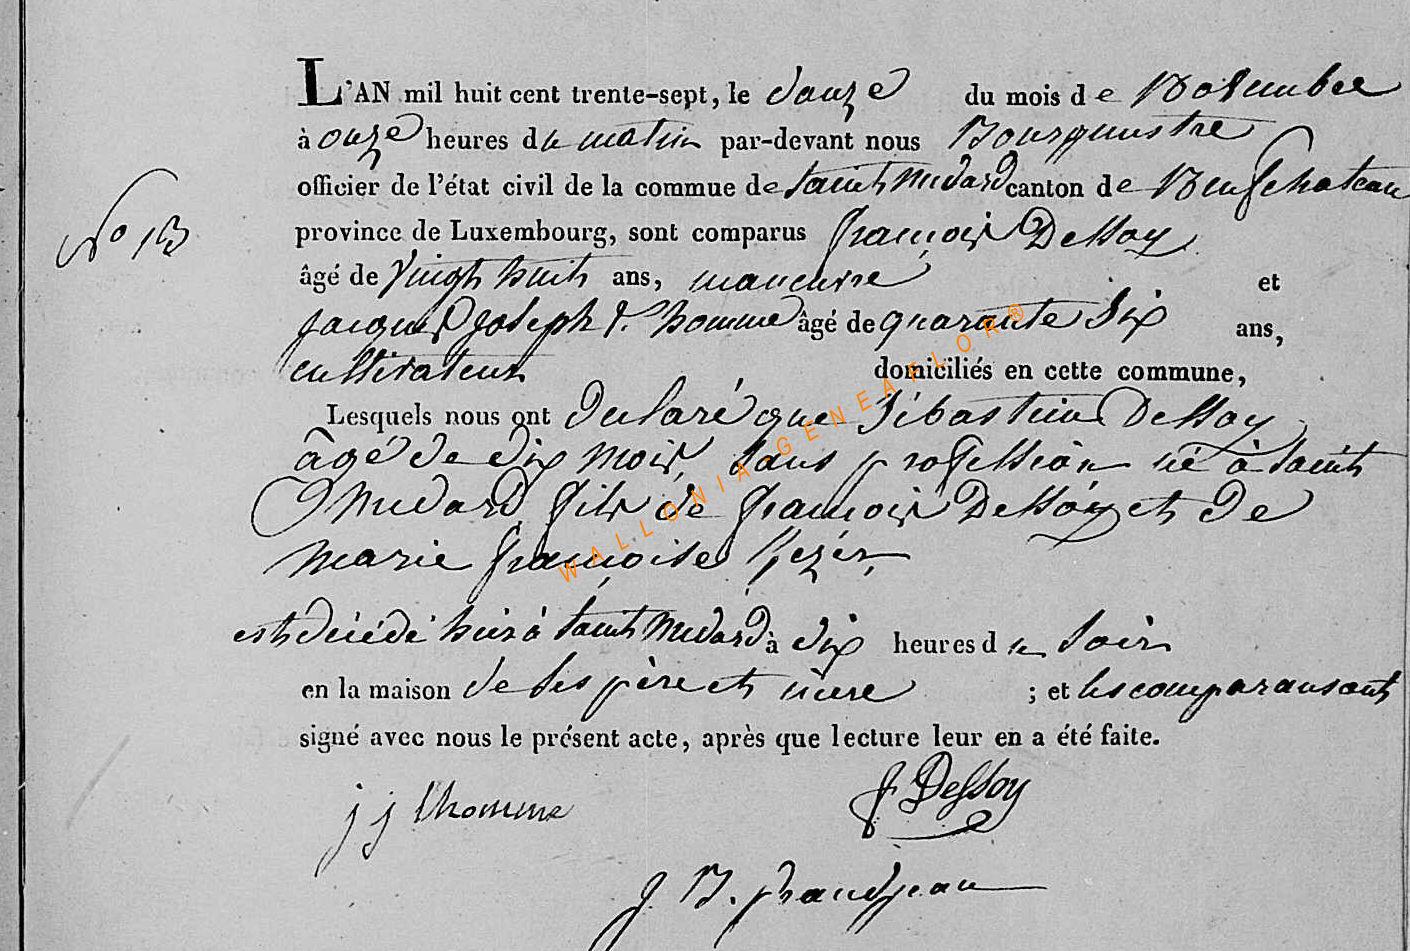 L'AN mil huit cent trente-sept, le douze du mois de Novembre
à onze heures du matin par-devant nous Bourgmestre
officier de l'état civil de la commue de Saint Médard canton de Neufchateau
N° 13
province de Luxembourg, sont comparus françois Dessoy
âgé de vingt huit ans, maneuvre et
jacques joseph L'homme âgé de quarante six ans,
cultivateur domiciliés en cette commune,
Lesquels nous ont déclaré que Sébastien Dessoy
âgé de dix mois, sans profession né à Saint
Médard fils de françois Dessoy et de
marie françoise
est décédé hier à Saint Médard à dix heures du Soir
en la maison de ses père et mère ; et les comparans ont
signé avec nous le présent acte, après que lecture leur en a été faite.
j j lhomme
f Dessoy
J. B. grandjean
WALLONIA-GENEAFLOR®